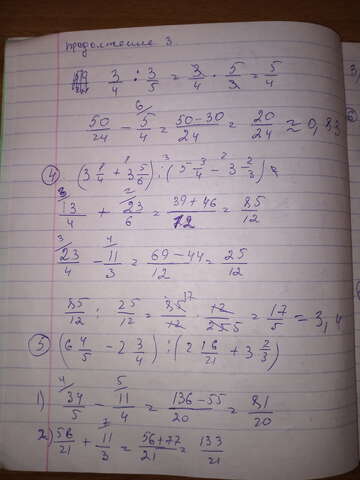 продолжение 3
3/4 : 3/5 = 3/4 · 5/3 = 5/4
50/24 - 5/4 = 50-30/24 = 20/24 ≈ 0,83
④ (3 1/4 + 3 5/6) : (5 3/4 - 3 2/3) =
13/4 + 23/6 = 39+46/12 = 85/12
23/4 - 11/3 = 69-44/12 = 25/12
85/12 : 25/12 = 85/12 · 12/255 = 17/5 = 3,4
⑤ (6 4/5 - 2 3/4) : (2 16/21 + 3 2/3)
1) 34/5 - 11/4 = 136-55/20 = 81/20
2) 58/21 + 11/3 = 56+77/21 = 133/21